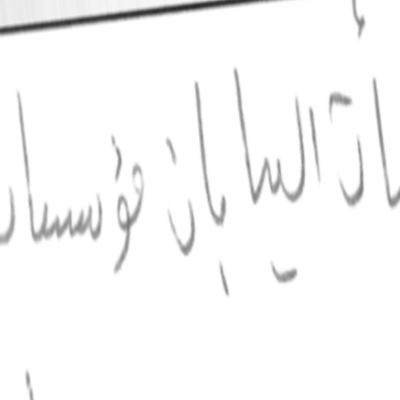 ات اليابان مؤسسات